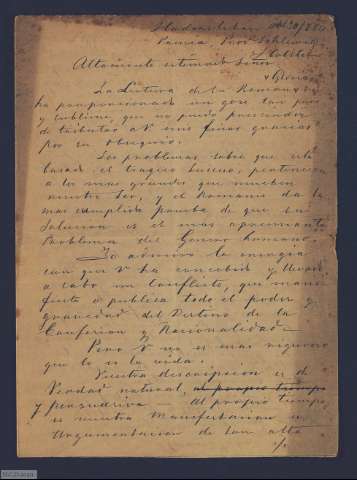 Altamente estimado Señor
La Lectura de la Romanza
ha proporcionado un goze tan puro
y sublime, que no puedo prescindir
de tributar a V mis finas gracias
por su obsequio.
Los problemas sobre que está
basado el tragico suceso, pertenecen
a los mas grandes que mueben
nuestro Ser, y el Romance da la
mas cumplida prueba de que su
solucion es el mas apremiante
Problema del Genero humano.
Yo admiro la energia
con que V ha concebido y llevado
a cabo un Conflicto, que mani
fiesta o publica todo el poder y
gravedad del Destino de la
Confesion y Nacionalidad.
Pero V no es mas riguroso
que lo es la vida.
Vuestra descripcion es de
Verdad natural, al propio tiempo
y persuasiva Al propio tiempo
es vuestra Manifestacion
Argumentacion de tan alta